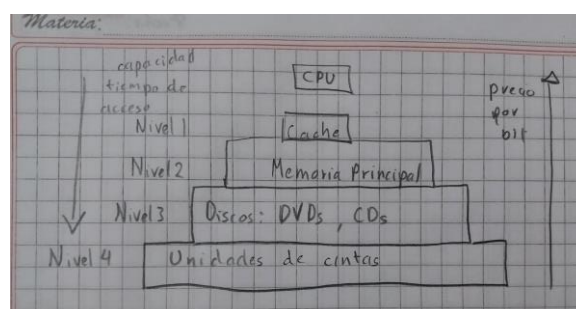 Materia:
capacidad
tiempo de
acceso
CPU
precio
por
bit
Nivel 1
Cache
Nivel 2
Memaria Principal
Nivel 3
Discos: DVDs, CDs
Nivel 4
Unidades de cintas